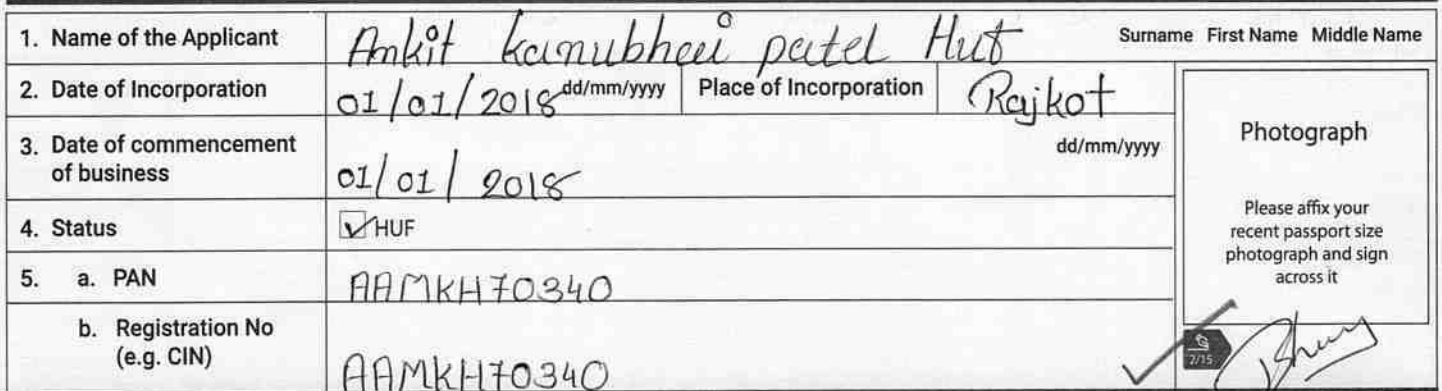 1. Name of the Applicant Ankit kanubhai patel Huf Surname First Name Middle Name
2. Date of Incorporation 01/01/2018 dd/mm/yyyy Place of Incorporation Rajkot
3. Date of commencement of business 01/01/2018 dd/mm/yyyy
4. Status HUF
5. a. PAN AAMKH70340
b. Registration No (e.g. CIN) AAMKH70340
Photograph
Please affix your
recent passport size
photograph and sign
across it
2/15